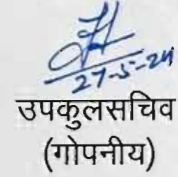 27-5-24
उपकुलसचिव
(गोपनीय)